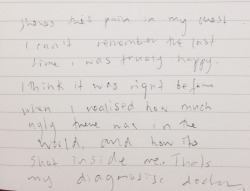 theres this pain in my chest
I can't remember the last
time i was truely happy.
I think it was right before
when I realised how much
ugly there was in the
world, and how its
shot inside me. Thats
my diagnosis doctor